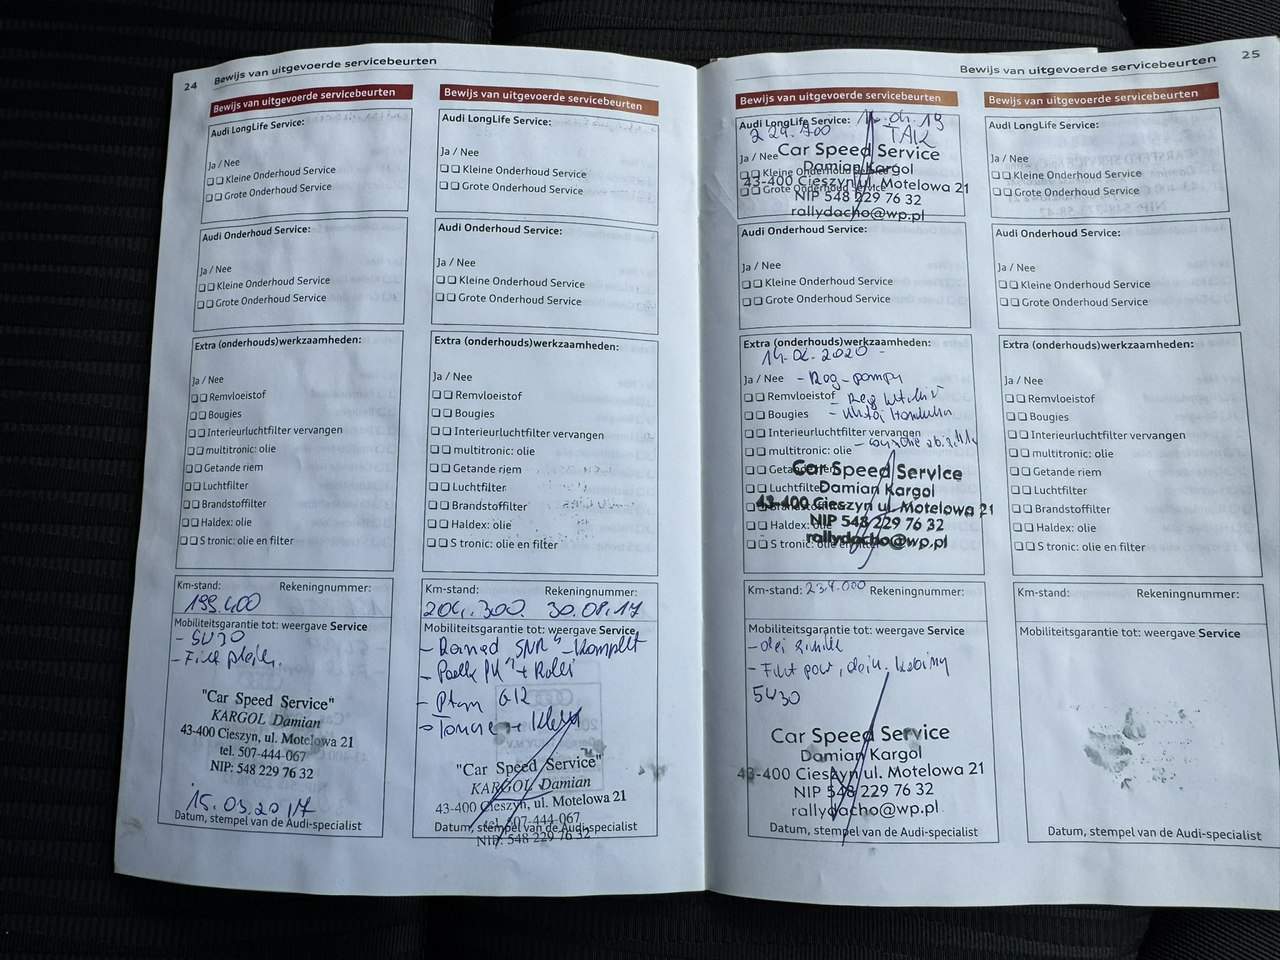 24 Bewijs van uitgevoerde servicebeurten
Bewijs van uitgevoerde servicebeurten
Audi LongLife Service:
Ja / Nee
Kleine Onderhoud Service
Grote Onderhoud Service
Audi Onderhoud Service:
Ja / Nee
Kleine Onderhoud Service
Grote Onderhoud Service
Extra (onderhouds)werkzaamheden:
Ja / Nee
Remvloeistof
Bougies
Interieurluchtfilter vervangen
multitronic: olie
Getande riem
Luchtfilter
Brandstoffilter
Haldex: olie
S tronic: olie en filter
Km-stand: Rekeningnummer:
199.400
Mobiliteitsgarantie tot: weergave Service
- 5W30
"Car Speed Service"
KARGOL Damian
43-400 Cieszyn, ul. Motelowa 21
tel. 507-444-067
NIP: 548 229 76 32
15.03.2017
Datum, stempel van de Audi-specialist
Bewijs van uitgevoerde servicebeurten
Audi LongLife Service:
Ja / Nee
Kleine Onderhoud Service
Grote Onderhoud Service
Audi Onderhoud Service:
Ja / Nee
Kleine Onderhoud Service
Grote Onderhoud Service
Extra (onderhouds)werkzaamheden:
Ja / Nee
Remvloeistof
Bougies
Interieurluchtfilter vervangen
multitronic: olie
Getande riem
Luchtfilter
Brandstoffilter
Haldex: olie
S tronic: olie en filter
Km-stand: Rekeningnummer:
204.300. 30.08.17
Mobiliteitsgarantie tot: weergave Service
SNR - Komplet
- Płyn G12
"Car Speed Service"
KARGOL Damian
43-400 Cieszyn, ul. Motelowa 21
tel. 507-444-067
Datum, stempel van de Audi-specialist
NIP: 548 229 76 32
Bewijs van uitgevoerde servicebeurten 25
Bewijs van uitgevoerde servicebeurten
Audi LongLife Service:
TAK
Ja / Nee
Car Speed Service
Damian Kargol
Kleine Onderhoud Service
43-400 Cieszyn ul. Motelowa 21
Grote Onderhoud Service
NIP 548 229 76 32
rallydacho@wp.pl
Audi Onderhoud Service:
Ja / Nee
Kleine Onderhoud Service
Grote Onderhoud Service
Extra (onderhouds)werkzaamheden:
2020 -
Ja / Nee
Remvloeistof
Bougies
Interieurluchtfilter vervangen
multitronic: olie
Car Speed Service
Damian Kargol
43-400 Cieszyn ul. Motelowa 21
Haldex: olie
NIP 548 229 76 32
S tronic: olie en filter
rallydacho@wp.pl
Km-stand: 234.000 Rekeningnummer:
Mobiliteitsgarantie tot: weergave Service
5W30
Car Speed Service
Damian Kargol
43-400 Cieszyn ul. Motelowa 21
NIP 548 229 76 32
rallydacho@wp.pl
Datum, stempel van de Audi-specialist
Bewijs van uitgevoerde servicebeurten
Audi LongLife Service:
Ja / Nee
Kleine Onderhoud Service
Grote Onderhoud Service
Audi Onderhoud Service:
Ja / Nee
Kleine Onderhoud Service
Grote Onderhoud Service
Extra (onderhouds)werkzaamheden:
Ja / Nee
Remvloeistof
Bougies
Interieurluchtfilter vervangen
multitronic: olie
Getande riem
Luchtfilter
Brandstoffilter
Haldex: olie
S tronic: olie en filter
Km-stand: Rekeningnummer:
Mobiliteitsgarantie tot: weergave Service
Datum, stempel van de Audi-specialist